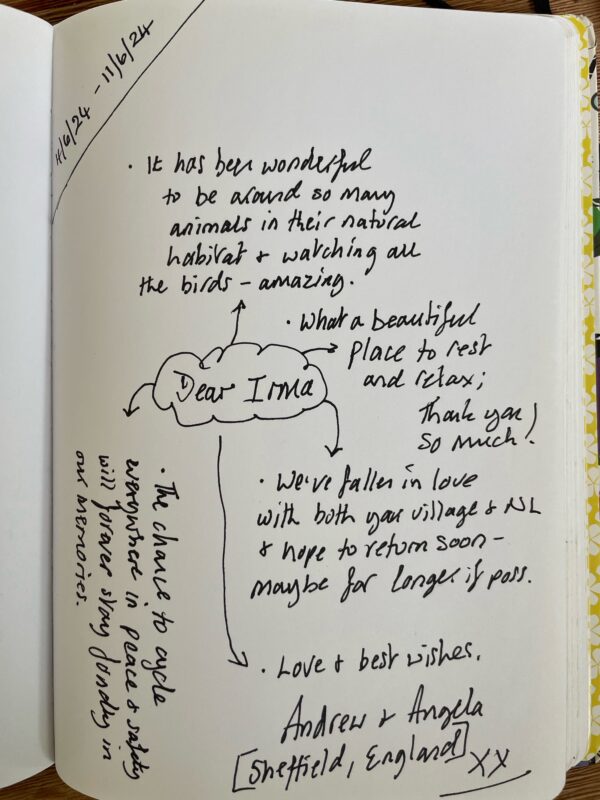 4/6/24 - 11/6/24
· It has been wonderful
to be around so many
animals in their natural
habitat & watching all
the birds - amazing.
· What a beautiful
place to rest
and relax;
Thank you
so much!
Dear Irma
· We've fallen in love
with both your village & NL
& hope to return soon -
maybe for longer if poss.
· The chance to cycle
everywhere in peace & safety
will forever stay fondly in
our memories.
· Love & best wishes.
Andrew & Angela
[Sheffield, England]
XX